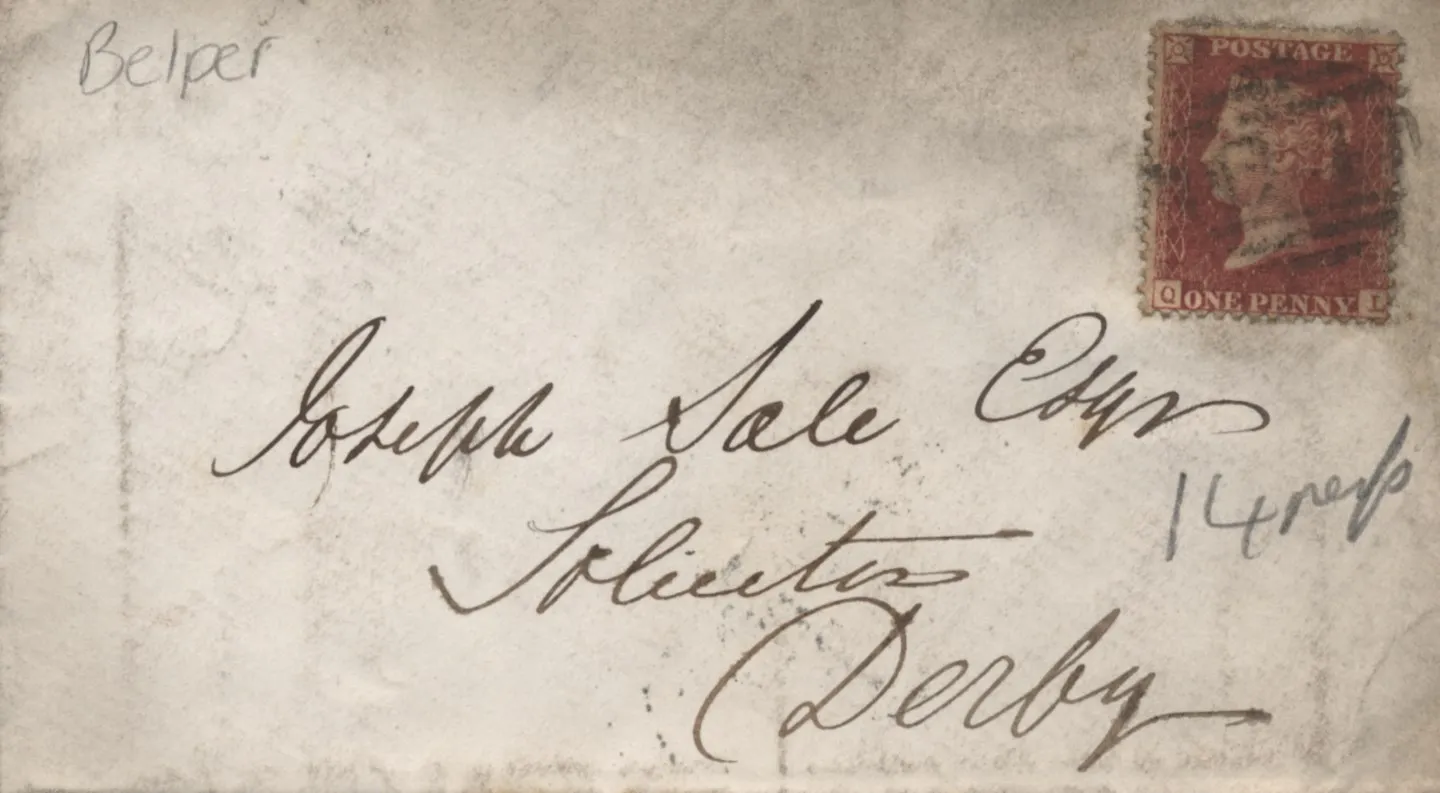 Belper
POSTAGE
Q ONE PENNY I
Joseph Sale Esqr
Solicitor
Derby
14